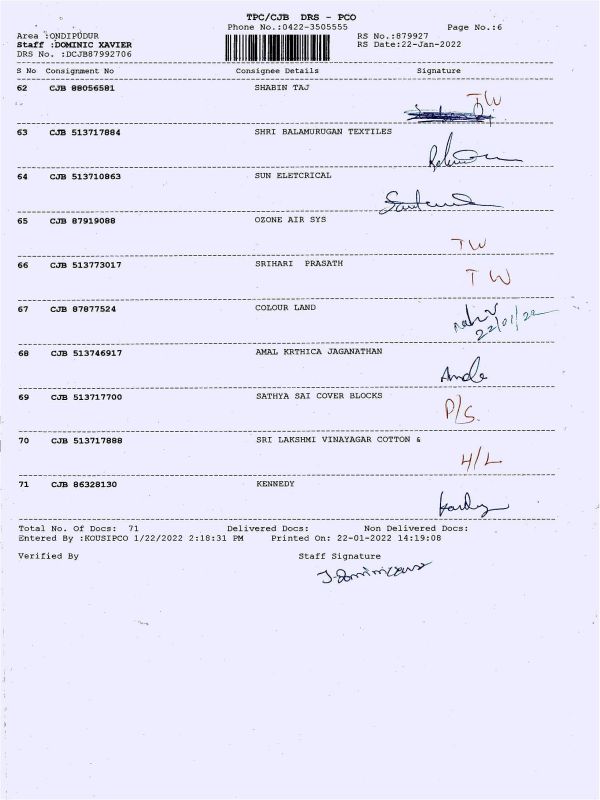 TPC/CJB DRS - PCO
Phone No.:0422-3505555 Page No.:6
Area :ONDIPUDUR RS No.:879927
Staff :DOMINIC XAVIER RS Date:22-Jan-2022
DRS No. :DCJB87992706
S No Consignment No Consignee Details Signature
62 CJB 88056581 SHABIN TAJ
TW
63 CJB 513717884 SHRI BALAMURUGAN TEXTILES
64 CJB 513710863 SUN ELETCRICAL
65 CJB 87919088 OZONE AIR SYS
TW
66 CJB 513773017 SRIHARI PRASATH
TW
67 CJB 87877524 COLOUR LAND
22/01/22
68 CJB 513746917 AMAL KRTHICA JAGANATHAN
69 CJB 513717700 SATHYA SAI COVER BLOCKS
P/S.
70 CJB 513717888 SRI LAKSHMI VINAYAGAR COTTON &
H/L
71 CJB 86328130 KENNEDY
Total No. Of Docs: 71 Delivered Docs: Non Delivered Docs:
Entered By :KOUSIPCO 1/22/2022 2:18:31 PM Printed On: 22-01-2022 14:19:08
Verified By Staff Signature